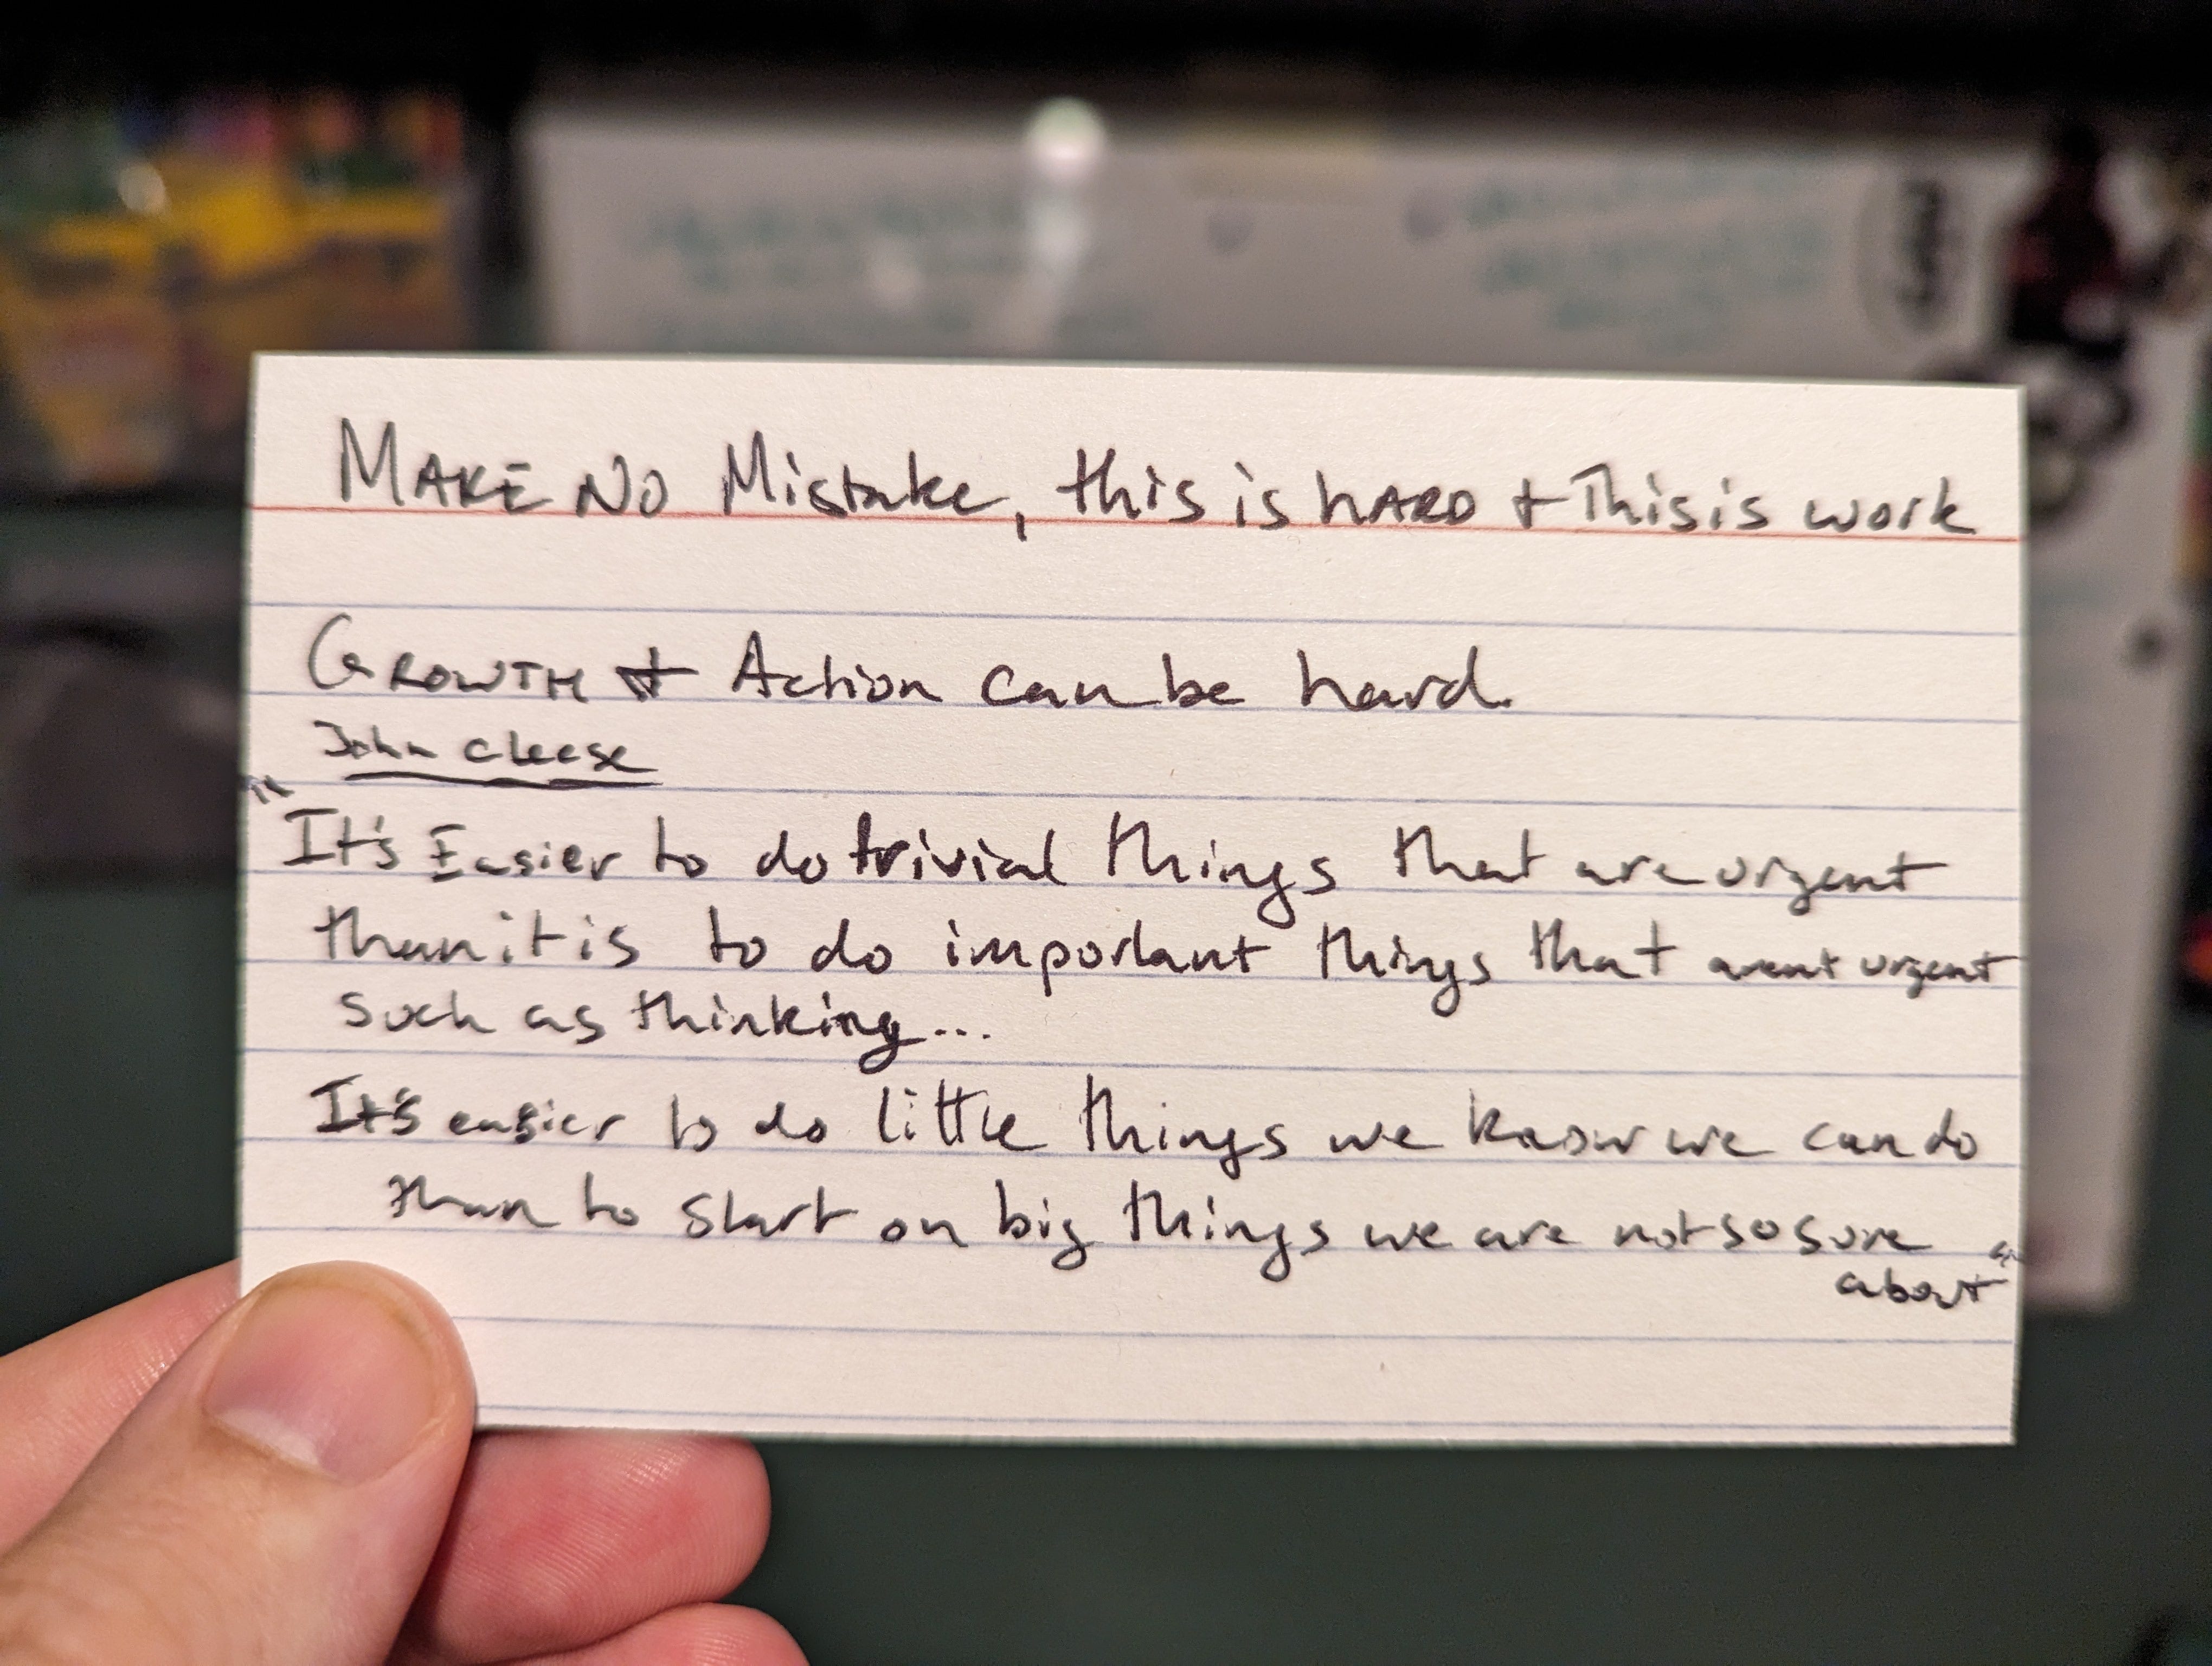 MAKE NO Mistake, this is hARD + This is work
GROWTH + Action can be hard.
John Cleese
"It's Easier to do trivial things that are urgent
than it is to do important things that arent urgent
such as thinking...
It's easier to do little things we know we can do
than to start on big things we are not so sure
about"